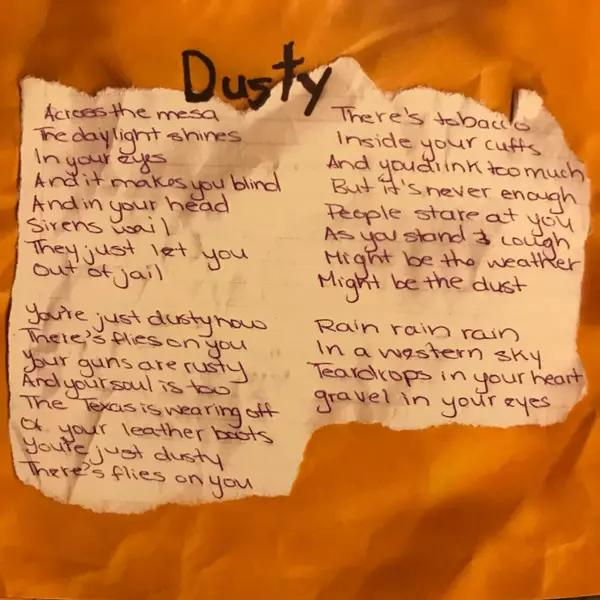 Dusty
Across the mesa
The daylight shines
In your eyes
And it makes you blind
And in your head
Sirens wail
They just let you
Out of jail
You're just dusty now
There's flies on you
Your guns are rusty
And your soul is too
The Texas is wearing off
Of your leather boots
You're just dusty
There's flies on you
There's tobacco
Inside your cuffs
And you drink too much
But it's never enough
People stare at you
As you stand & cough
Might be the weather
Might be the dust
Rain rain rain
In a western sky
Teardrops in your heart
gravel in your eyes